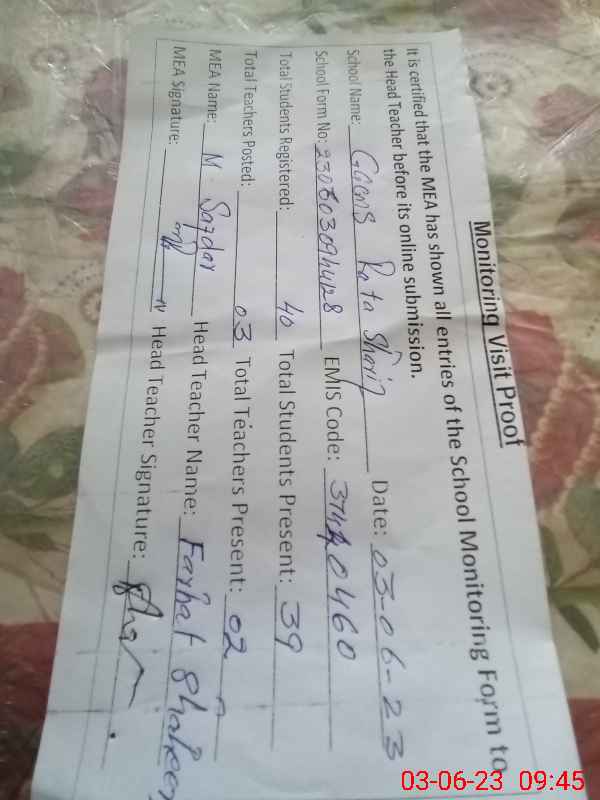 Monitoring Visit Proof
It is certified that the MEA has shown all entries of the School Monitoring Form to
the Head Teacher before its online submission.
School Name: GGCMS Rata Sharif Date: 03-06-23
School Form No: EMIS Code: 0460
Total Students Registered: 40 Total Students Present: 39
Total Teachers Posted: 03 Total Teachers Present: 02
MEA Name: M. Safdar Head Teacher Name: Farhat Shaheen
MEA Signature: Head Teacher Signature:
03-06-23 09:45